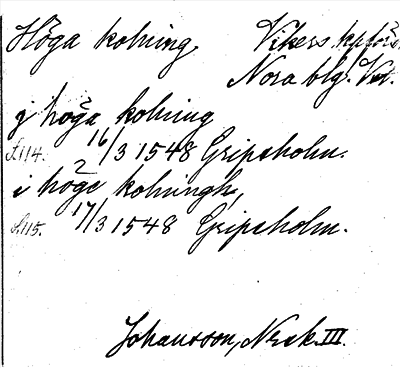 Höga kolning, Vikers kpförs.
Nora blg. Vm.
j höga kolning
f. 114. 16/3 1548 Gripsholm.
i höge kolningh,
f. 115. 17/3 1548 Gripsholm.
Johansson, Nrsk. III.